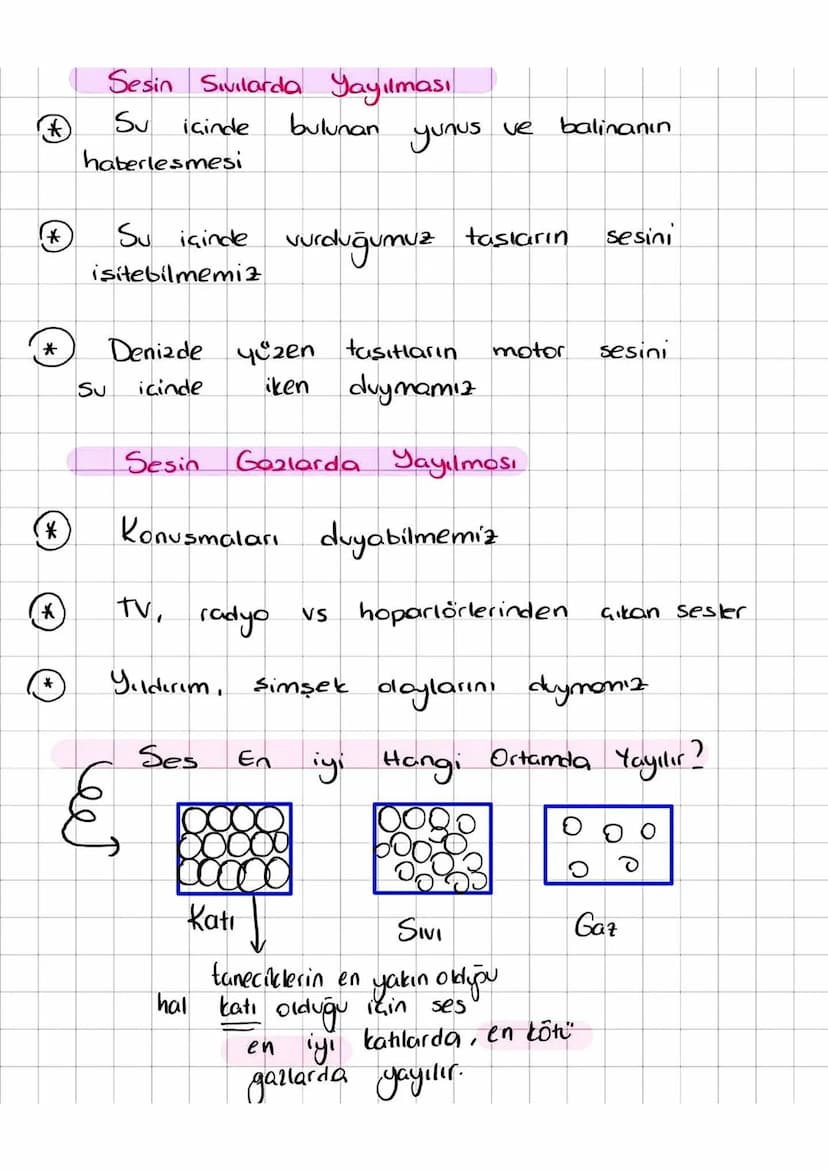 Sesin Sıvılarda Yayılması
* Su icinde bulunan yunus ve balinanın
haberlesmesi
* Su içinde vurduğumuz tasların sesini
isitebilmemiz
* Denizde yüzen tasıtların motor sesini
su icinde iken duymamız
Sesin Gazlarda Yayılması
* Konusmaları duyabilmemiz
* TV, radyo vs hoparlörlerinden çıkan sesler
* Yıldırım, simşek olaylarını duymamız
Ses En iyi Hangi Ortamda Yayılır?
Katı Sıvı Gaz
taneciklerin en yakın olduğu
hal katı olduğu için ses
en iyi katılarda, en kötü
gazlarda yayılır.